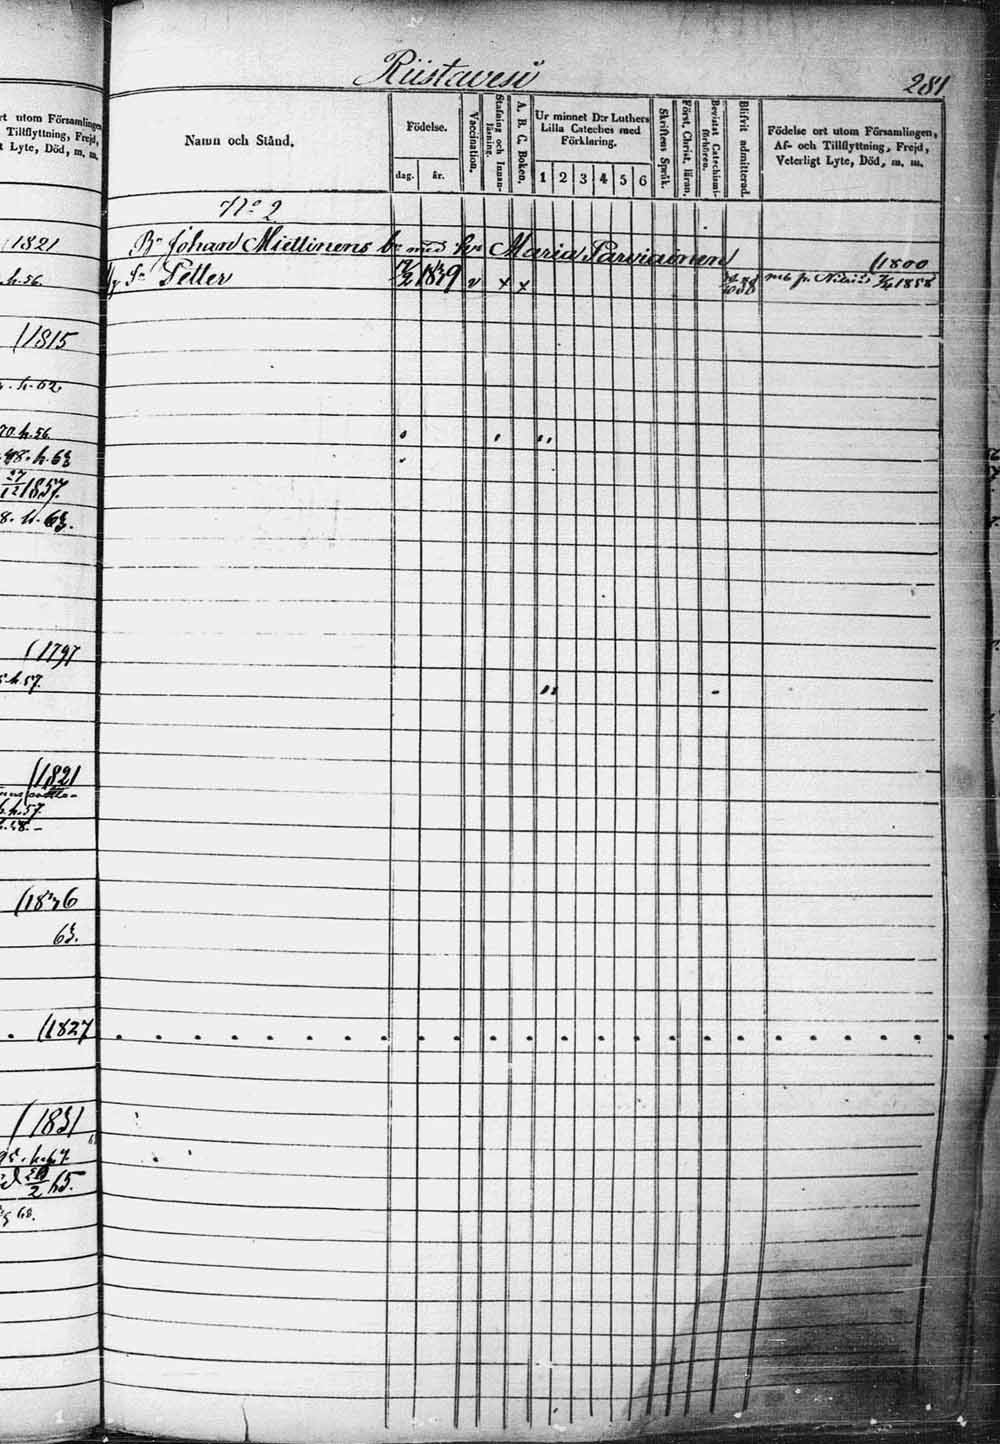 Riistavesi
281
rt utom Församlingen
Tillflyttning, Frejd,
t Lyte, Död, m. m.
Namn och Stånd.
Födelse.
dag.
år.
Vaccination.
Stafning och Innan-
läsning.
A. B. C. Boken.
Ur minnet D:r Luthers
Lilla Cateches med
Förklaring.
1 2 3 4 5 6
Skriftens Språk.
Först. Christ. läran.
Bevistat Catechismi-
förhören.
Blifvit admitterad.
Födelse ort utom Församlingen,
Af- och Tillflyttning, Frejd,
Veterligt Lyte, Död, m. m.
No 2
(1821
Bn Johan Miettinens br med hu Maria Parviainen
(1800
h. 56.
Sn Peller
1839 v x x
1858
(1815
h. 62
70. h. 56.
48. h. 63
27/12 1857.
8. h. 63.
(1797
h. 57.
(1821
h. 57.
(1836
63.
(1827
(1831
95. h. 67.
2 65.
68.